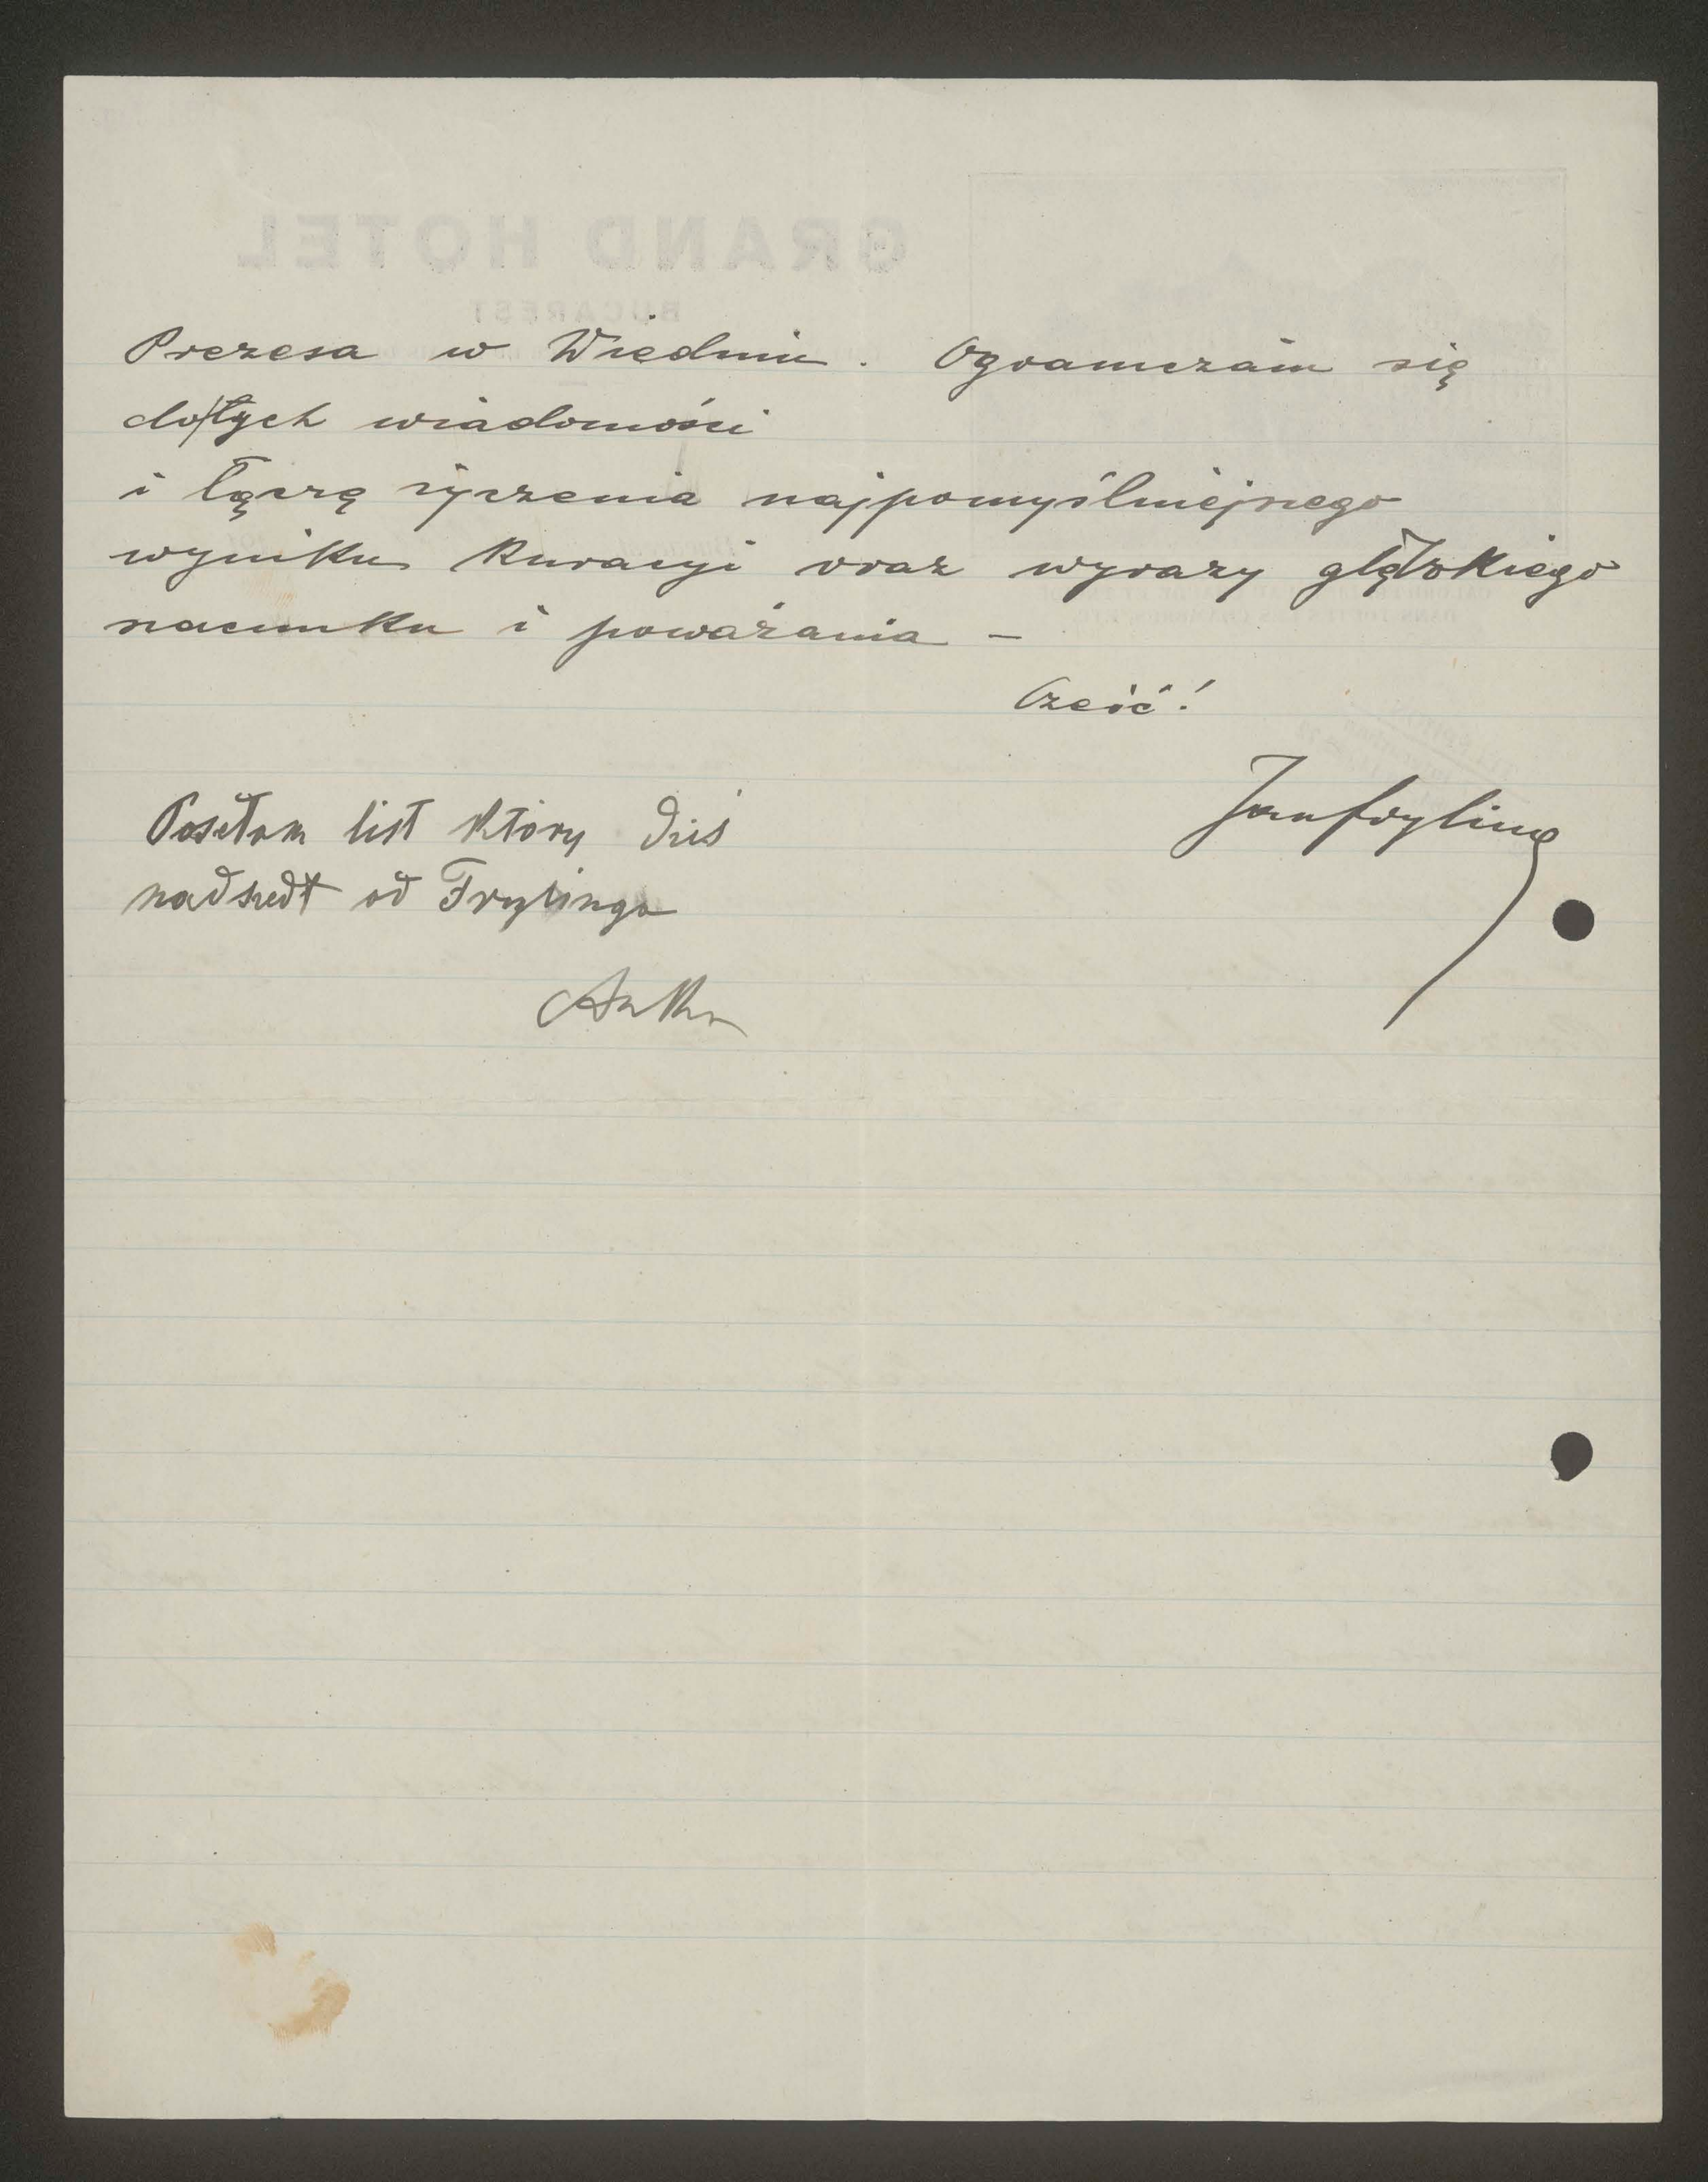 GRAND HOTEL
BUCAREST
Prezesa w Wiedniu. Ograniczam się
do tych wiadomości
i łączę życzenia najpomyślniejszego
wyniku kuracyi oraz wyrazy głębokiego
szacunku i poważania –
Cześć!
Jan Fryling
Posełam list który dziś
nadszedł od Frylinga
Anka